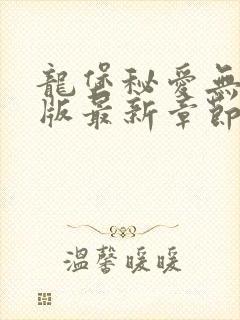 龍堡秘愛無
版最新章節
溫馨暖暖